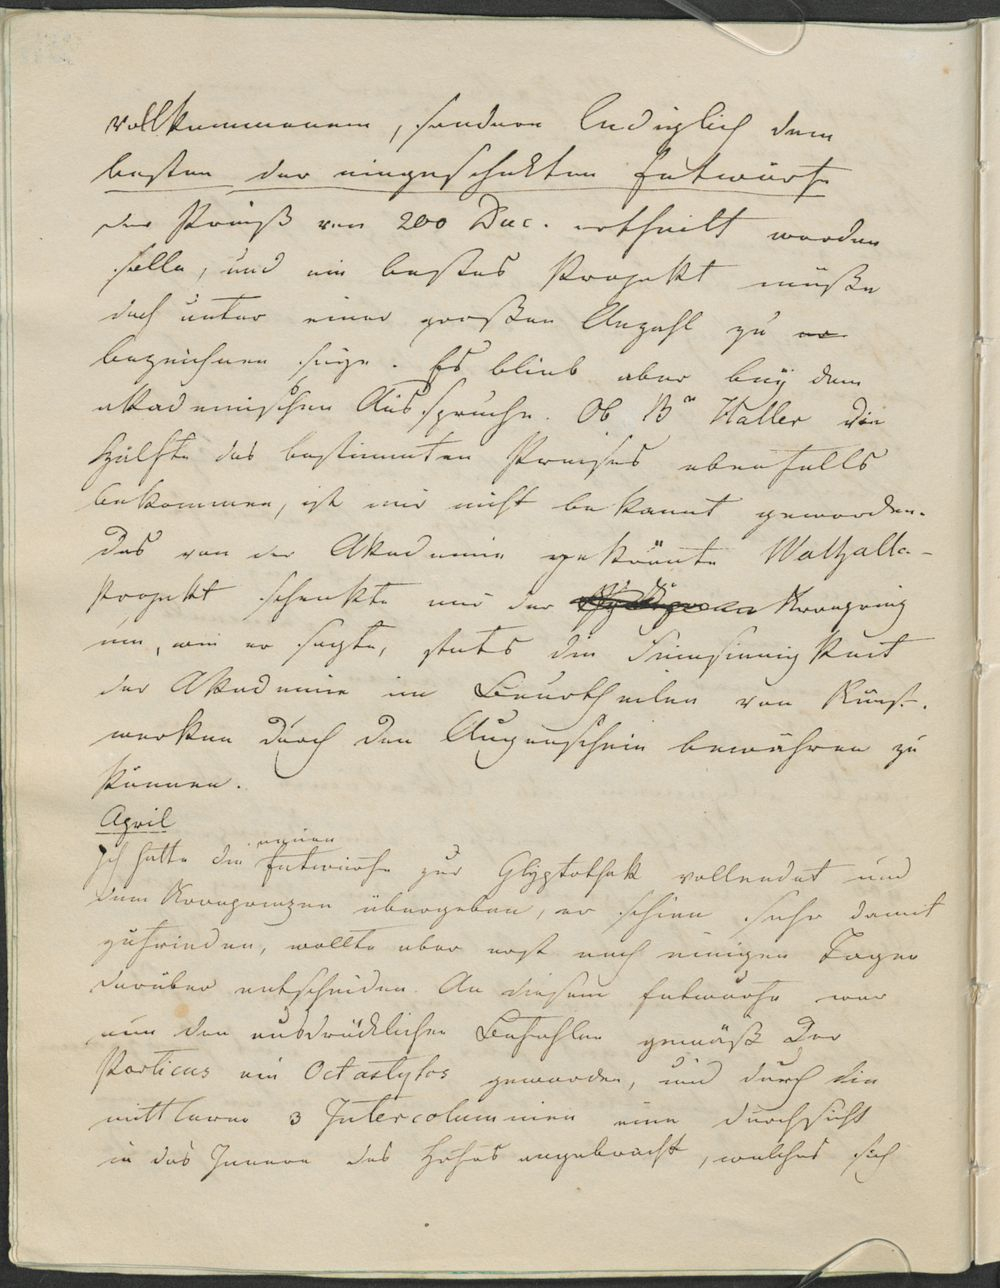 vollkommenem, sondern lediglich dem
besten der eingeschikten Entwürfe
der Preiß von 200 Duc. ertheilt werden
solle, und ein bestes Projekt müße
doch unter einer großen Anzahl zu
bezeichnen seyn. Es blieb aber bey dem
akademischen Ausspruche. Ob Bn Haller die
Hälfte des bestimmten Preises ebenfalls
bekommen, ist mir nicht bekannt geworden.
Das von der Akademie gekrönte Walhalla-
Projekt schenkte mir der Kronprinz
um, wie er sagte, stets die
der Akademie im Beurtheilen von Kunst-
werken durch den Augenschein bewähren zu
können.
April
Ich hatte die neuen Entwürfe zur Glyptothek vollendet und
dem Kronprinzen übergeben, er schien sehr damit
zufrieden, wollte aber erst nach einigen Tagen
darüber entscheiden. An diesem Entwurfe war
nun den ausdrücklichen Befehlen gemäß der
Porticus ein Octastylos geworden, und durch die
mittleren 3 Intercolumnien eine Durchsicht
in das Innere des Hofes angebracht, welches sich